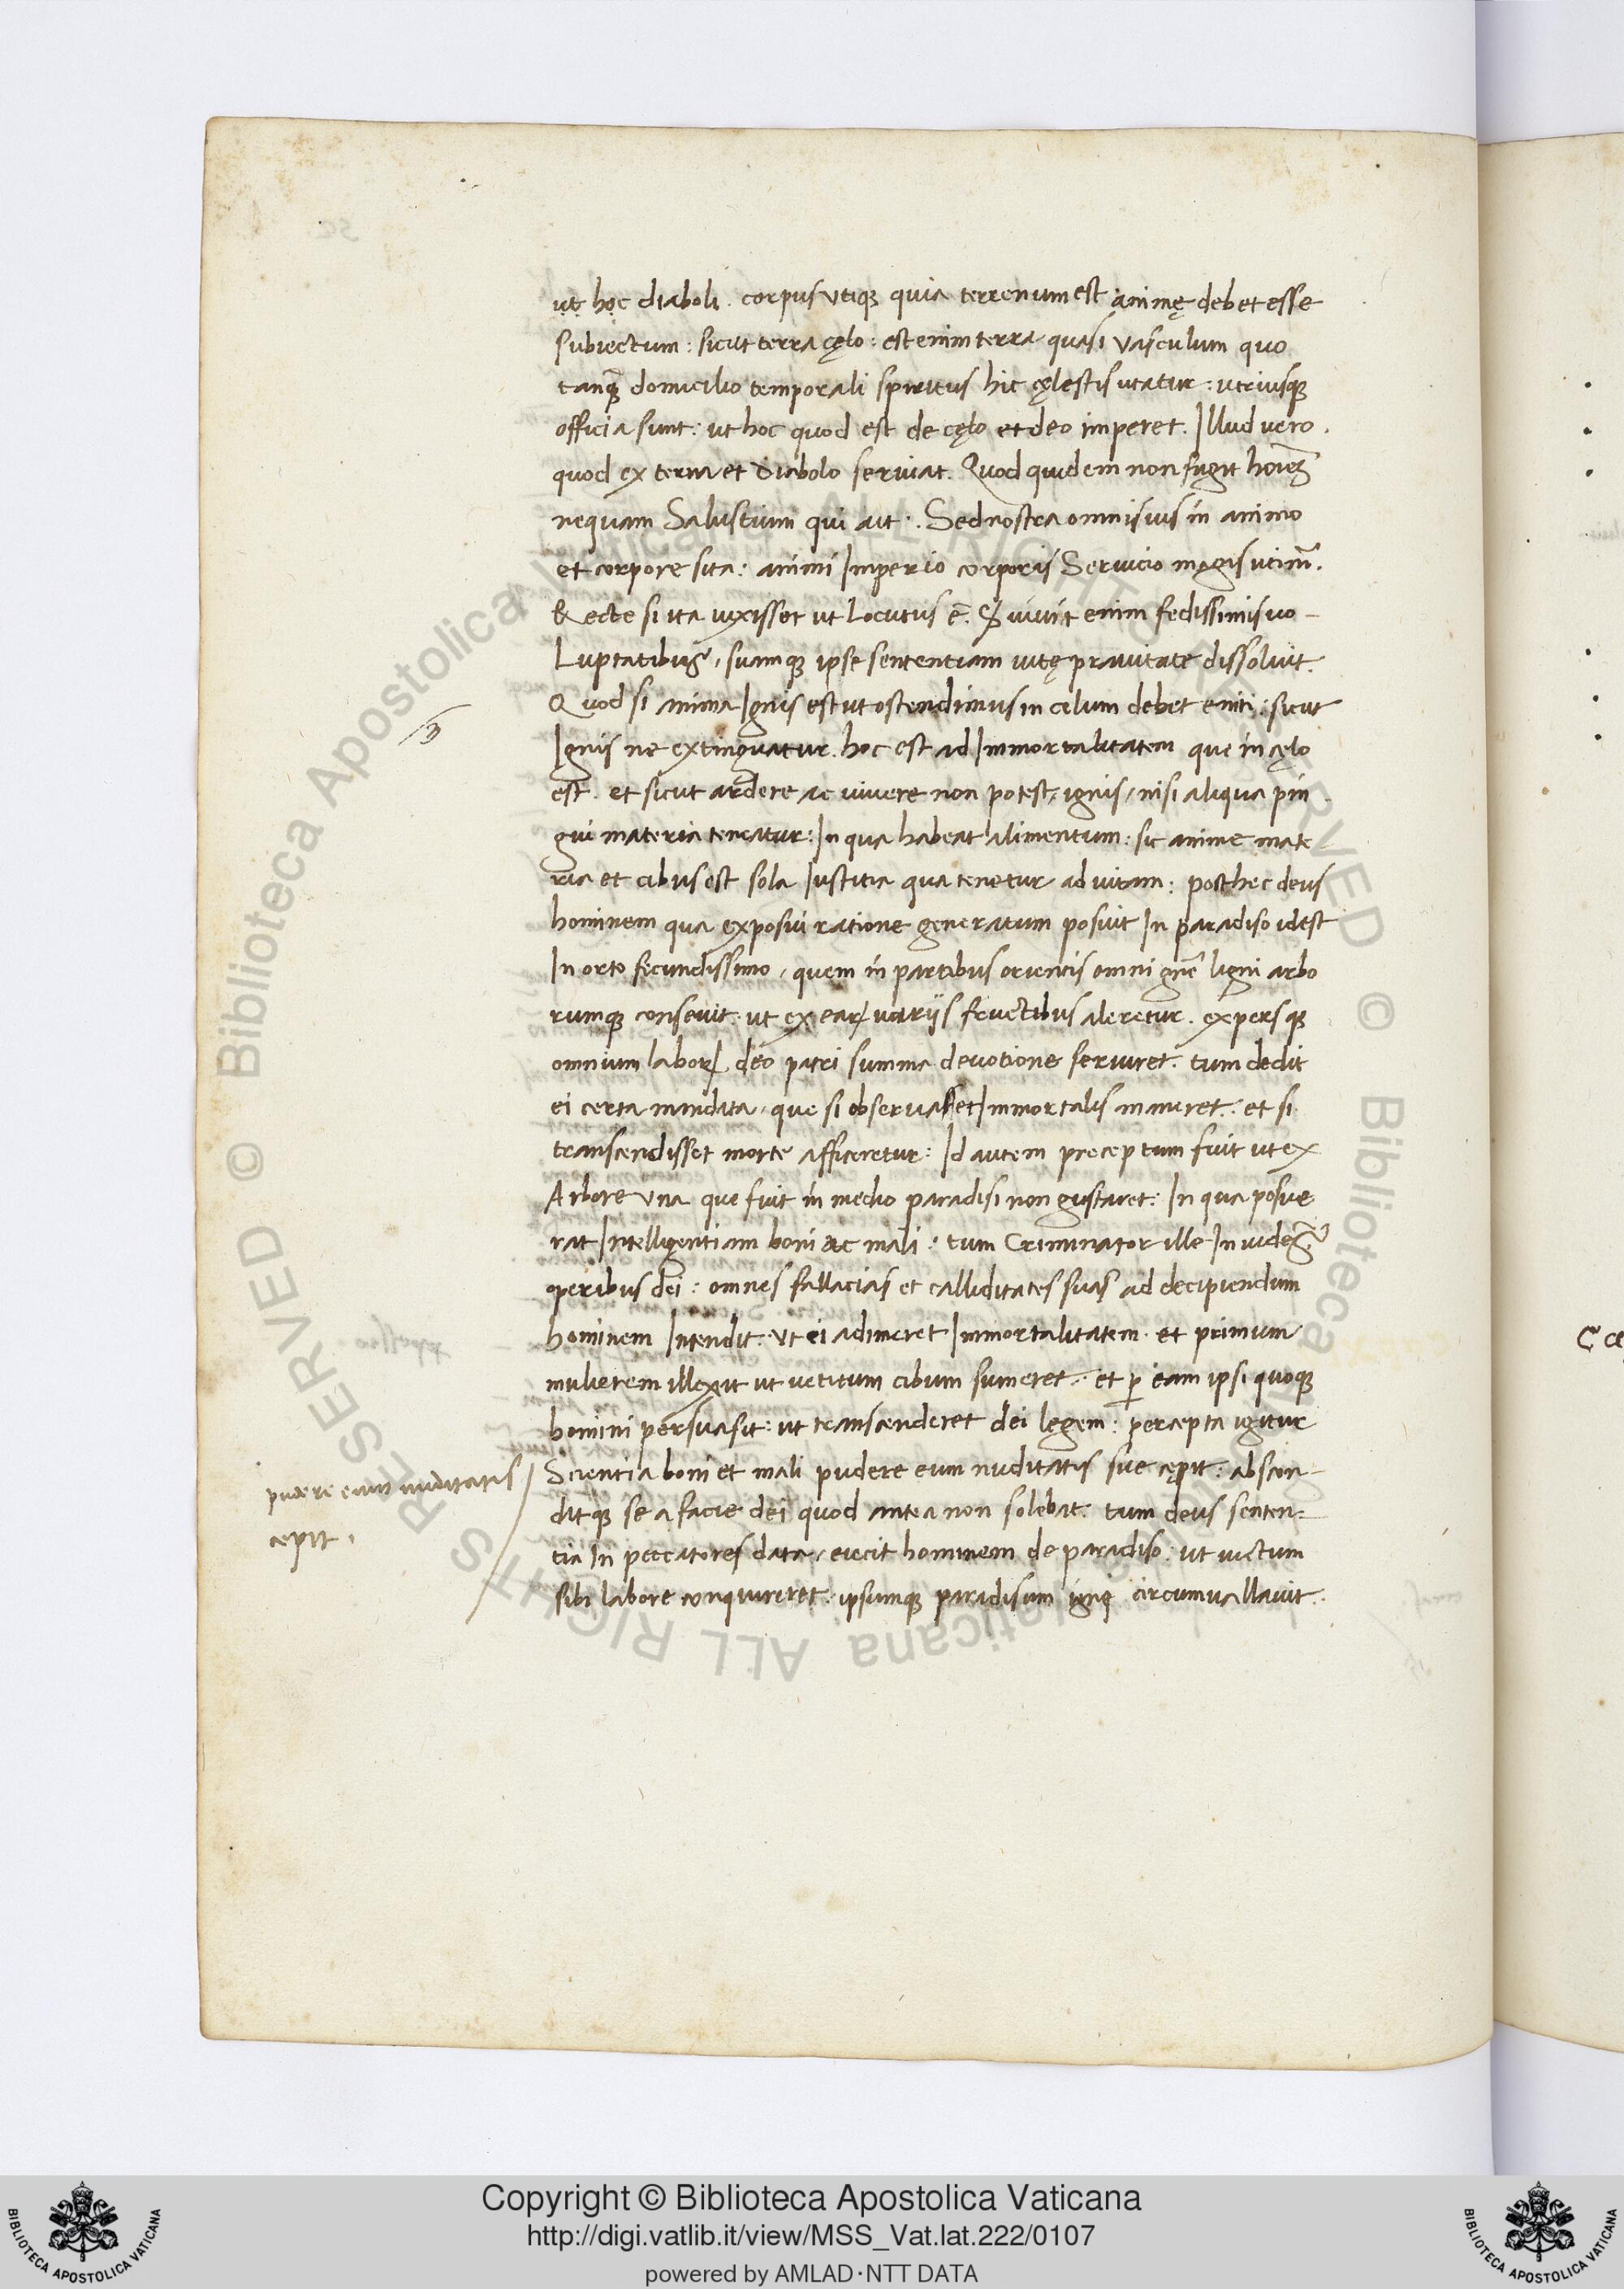 ut hoc diaboli. corpus utiqꝫ quia terrenum est animę debet esse
subiectum: sicut terra cęlo: est enim terra quasi vasculum quo
tanqꝫ domicilio temporali spiritus hic cęlestis utatur: utriusqꝫ
officia sunt: ut hoc quod est de cęlo et deo imperet. Illud uero.
quod ex terra et diabolo seruiat. Quod quidem non fugit hoiēꝫ
nequam Salustium qui ait: Sed nostra omnis uis in animo
et corpore sita: animi Imperio corporis Seruicio magis utimᷣ.
Recte si ita uixisset ut Locutus ē. Sꝫ uiuit enim fedissimis uo-
Luptatibꝰ, suamqꝫ ipse sententiam uitę prauitate dissoluit.
Quod si anima Ignis est ut ostendimus in celum debet eniti: sicut
Ignis ne extinguatur. hoc est ad Immortalitatem que in cęlo
est. et sicut ardere ac uiuere non potest, ignis, nisi aliqua pin
gui materia teneatur: In qua habeat alimentum: sic anime mate
ria et cibus est sola Iustitia qua tenetur ad uitam: post hec deus
hominem qua exposui ratione generatum posuit In paradiso idest
In orto fecundissimo, quem in partibus orientis omni gn̄e ligni arbo
rumqꝫ conseuit: ut ex eaꝝ uariis fructibus aleretur. expersqꝫ
omnium laboꝝ, deo patri summa deuotione seruiret. tum dedit
ei certa mandata, que si obseruasset Immortalis maneret: et si
transcendisset morte afficeretur: Id autem preceptum fuit ut ex
Arbore una que fuit in medio paradisi non gustaret: In qua posue
rat Intelligentiam boni ac mali: tum Criminator ille Inuidens
operibus dei: omnes fallacias et calliditates suas ad decipiendum
hominem Intendit: ut ei adimeret Immortalitatem. et primum
mulierem illexit ut uetitum cibum sumeret: et ꝑ eam ipsi quoqꝫ
homini persuasit: ut transcenderet dei legem: percepta igitur
Scientia boni et mali pudere eum nuditatis sue cępit: abscon-
ditqꝫ se a facie dei quod antea non solebat: tum deus senten-
tia In peccatores data, eiecit hominem de paradiso: ut uictum
sibi labore conquireret: ipsumqꝫ paradisum igne circumuallauit.
pudere eum nuditatis
cepit.
Copyright © Biblioteca Apostolica Vaticana
http://digi.vatlib.it/view/MSS_Vat.lat.222/0107
powered by AMLAD·NTT DATA
BIBLIOTECA APOSTOLICA VATICANA
BIBLIOTECA APOSTOLICA VATICANA
© Biblioteca Apostolica Vaticana ALL RIGHTS RESERVED
© Biblioteca Apostolica Vaticana ALL RIGHTS RESERVED